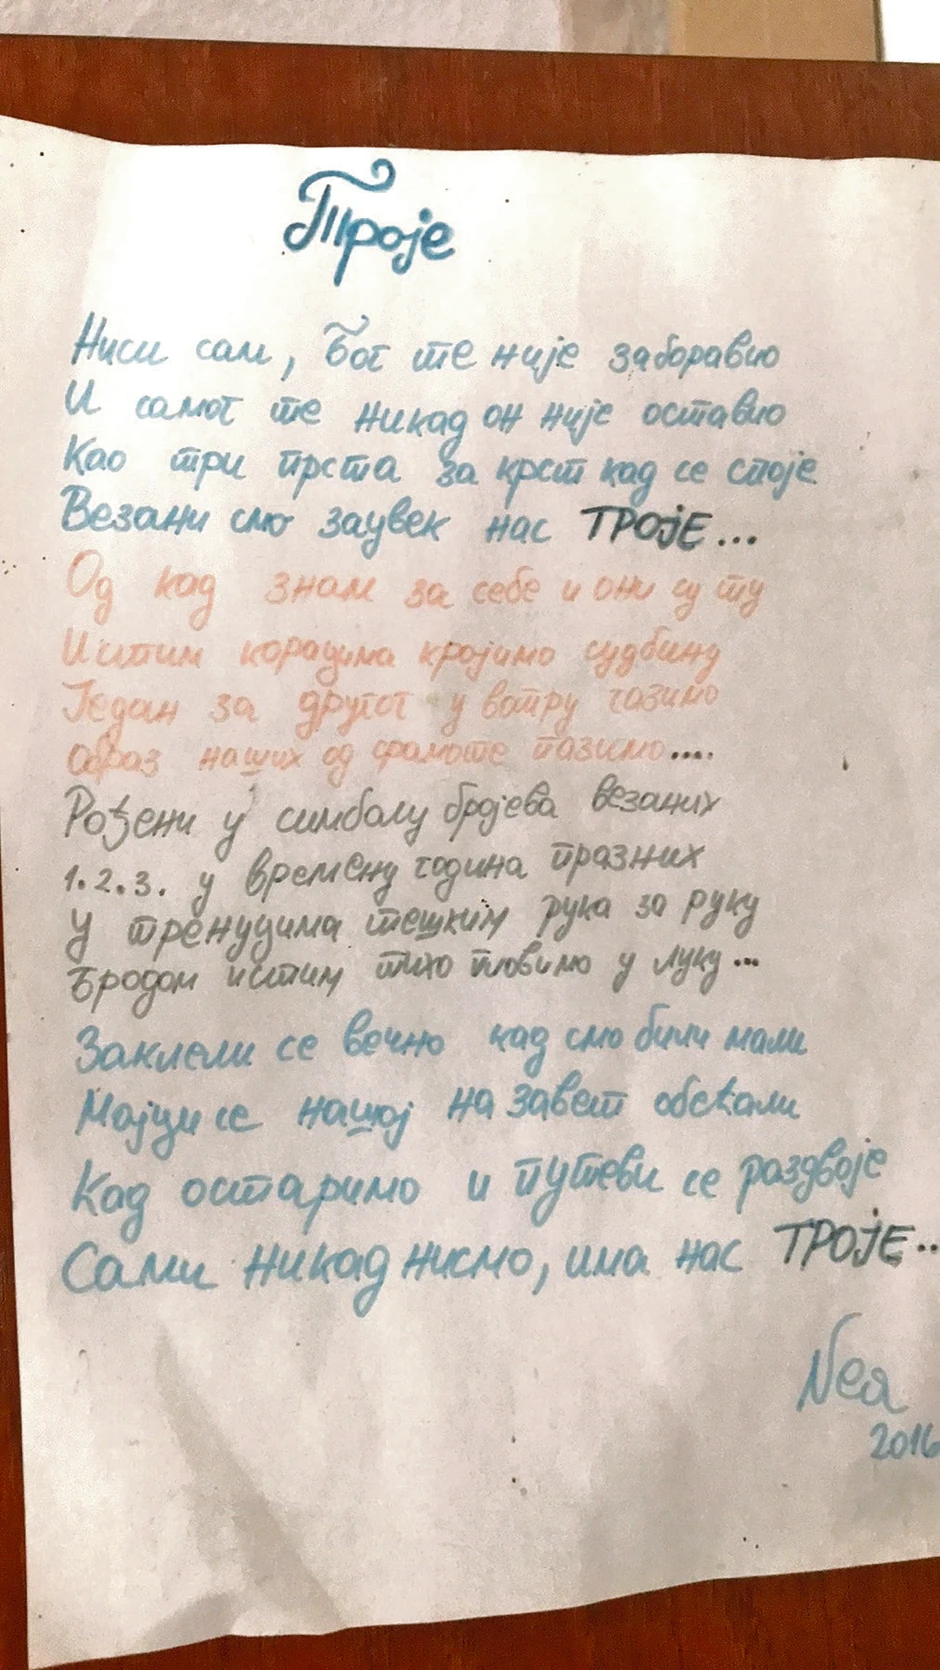 Троје
Ниси сам, Бог те није заборавио
И самог те никад он није оставио
Као три прста за крст кад се споје
Везани смо заувек нас ТРОЈЕ...
Од кад знам за себе и они су ту
Истим корацима кројимо судбину
Један за другог у ватру газимо
Образ наших од срамоте пазимо....
Рођени у симболу бројева везаних
1.2.3. у времену година празних
У тренуцима тешким рука за руку
Бродом истим тихо пловимо у луку...
Заклели се вечно кад смо били мали
Мајци се нашој на завет обећали
Кад остаримо и путеви се раздвоје
Сами никад нисмо, има нас ТРОЈЕ..
Nея
2016